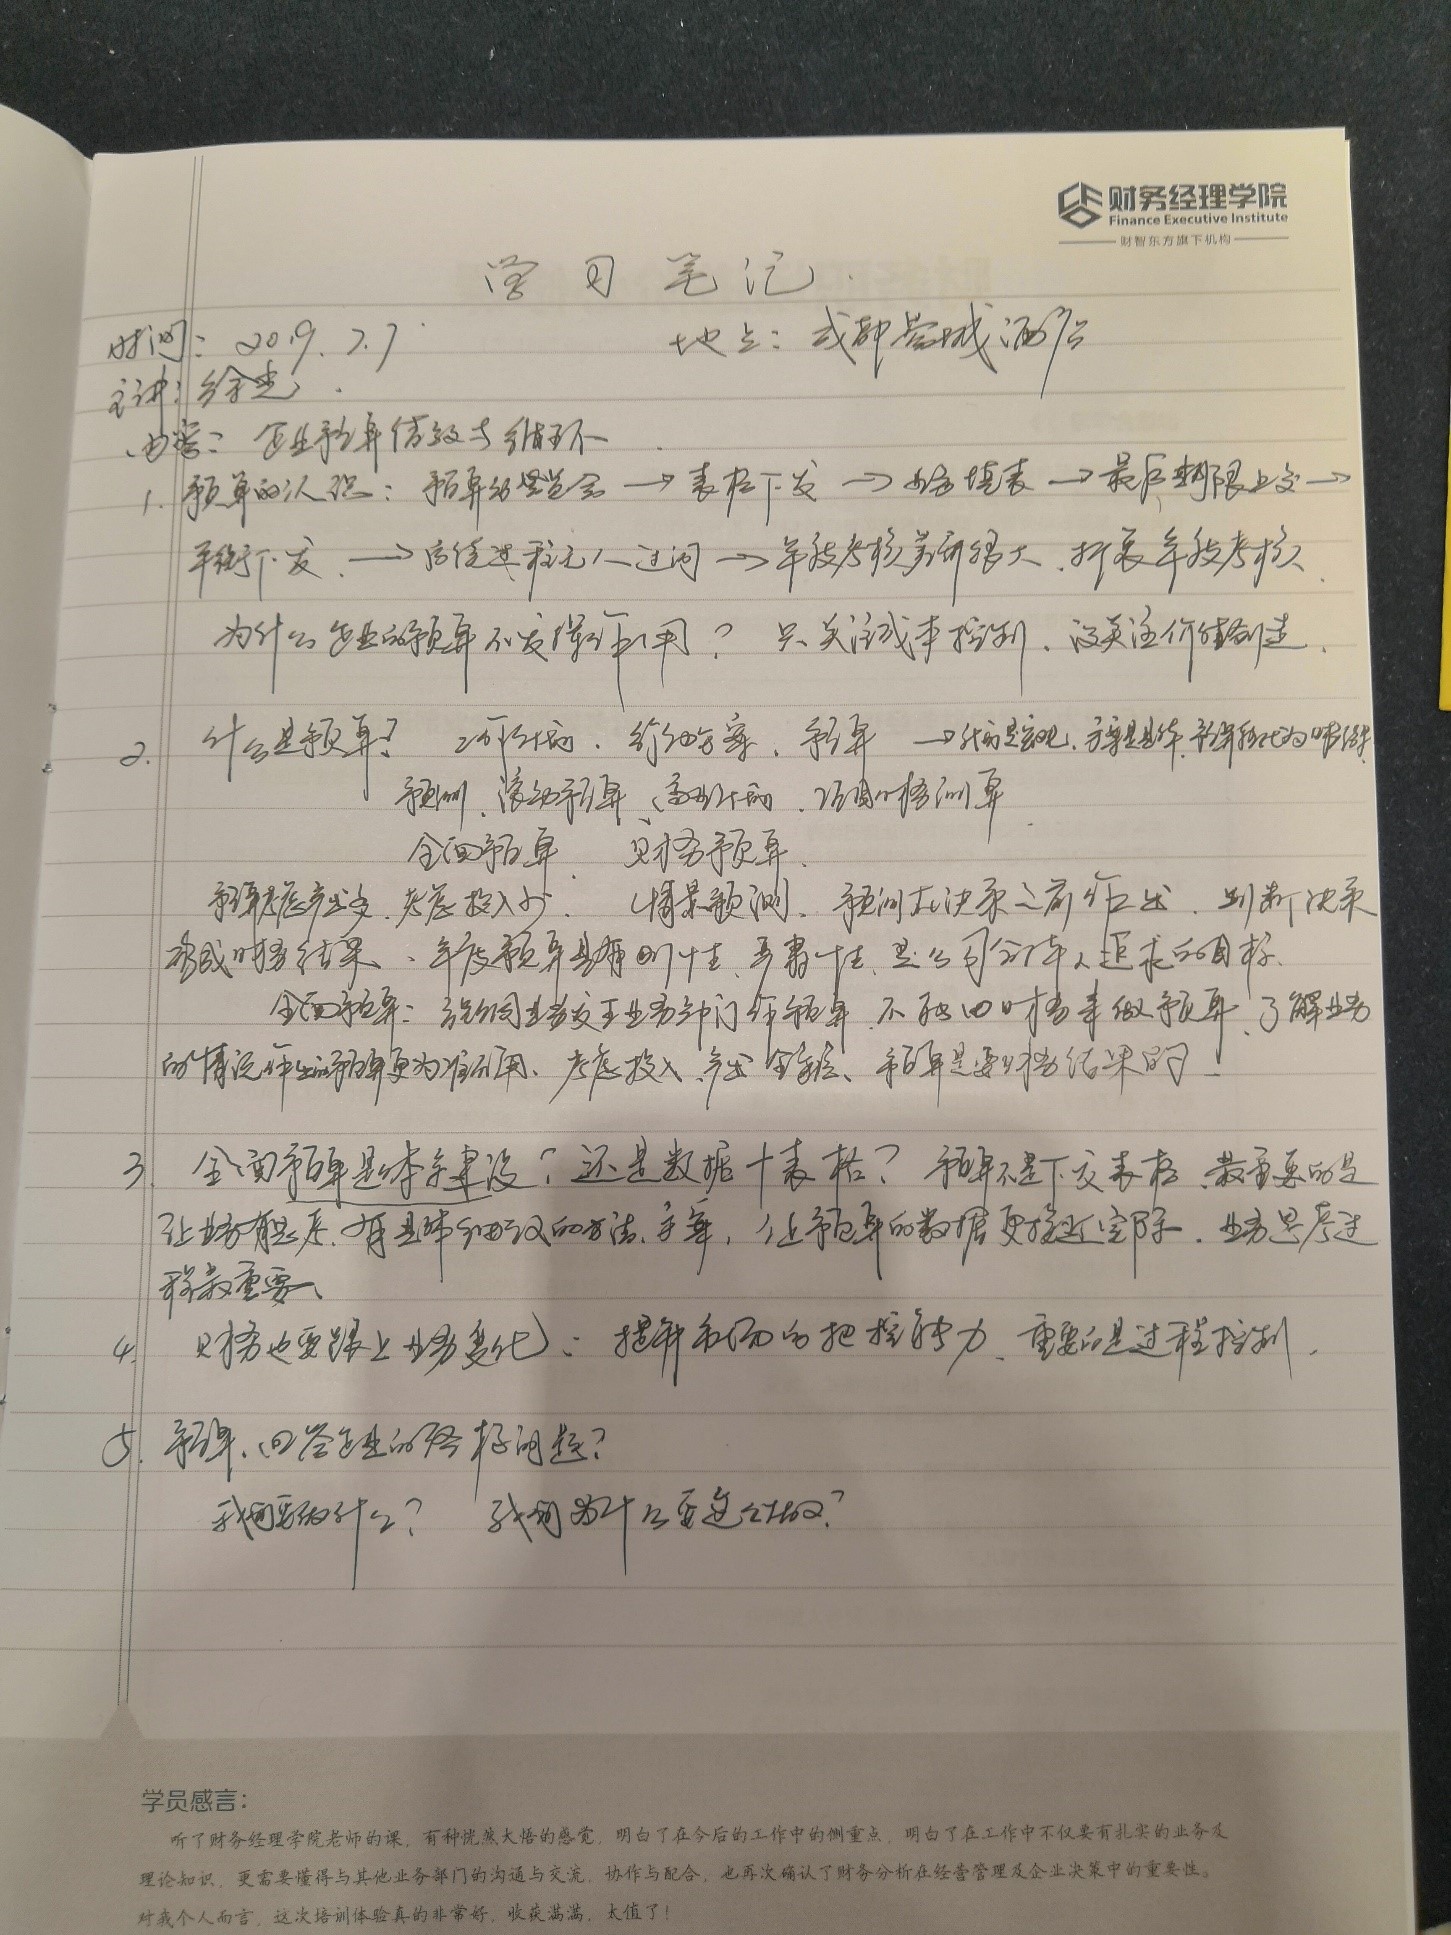 财务经理学院
Finance Executive Institute
财智东方旗下机构
学习笔记.
时间: 2019.7.7. 地点: 成都蓉城酒店
主讲:徐
内容: 企业预算
1. 预算的认识: 预算 → 表格下发 → 业务填表 → 最后期限上交 →
平衡下发. → 后续过程无人过问 → 年底考核差异很大. 年终考核.
为什么企业的预算不发挥作用? 只关注成本控制、没关注价值创造.
2. 什么是预算? 计划、行动方案、预算 →
预测、滚动预算、商业计划、项目财务测算
全面预算、财务预算.
预算考虑产出多,考虑投入少. 情景预测、预测在决策之前作出. 判断决策
形成财务结果、年度预算具有刚性、严肃性、是公司全体人追求的目标.
全面预算: 业务部门作预算、不能由财务来做预算、了解业务
的情况作出的预算更为准确、考虑投入、产出、预算是要财务结果的
3. 全面预算是体系建设? 还是数据+表格? 预算不是下交表格、最重要的是
让业务有思考、有具体细致的方法、方案,让预算的数据更接近实际、业务思考过
程最重要、
4. 财务也要跟上业务变化: 提升市场的把控能力、重要的是过程控制.
5. 预算、回答企业的 问题?
我们要做什么? 我们为什么要这么做?
学员感言:
听了财务经理学院老师的课,有种恍然大悟的感觉,明白了在今后的工作中的侧重点,明白了在工作中不仅要有扎实的业务及
理论知识,更需要懂得与其他业务部门的沟通与交流,协作与配合,也再次确认了财务分析在经营管理及企业决策中的重要性。
对我个人而言,这次培训体验真的非常好,收获满满,太值了!